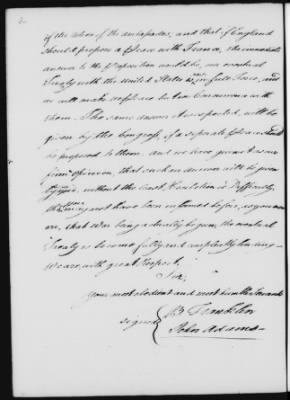 if the alone of the antipodes, and that if England
should propose a Peace with France, the immediate
answer to the proposition would be, our eventual
Treaty with the United States is now in full Force, and
we will make no Peace but in Concurrence with
them. The same answer it is expected, will be
given by the Congress, if a separate Peace should
be proposed to them. and we have given it as our
firm opinion, that such an answer will be given
by you, without the least Hesitation or Difficulty,
tho' you may not have been informed before, as you now
are, that war being actually begun, the eventual
Treaty is become fully and compleatly binding.
We are, with great respect,
Sir,
your most obedient and most humble Servants
signed B Franklin
John Adams